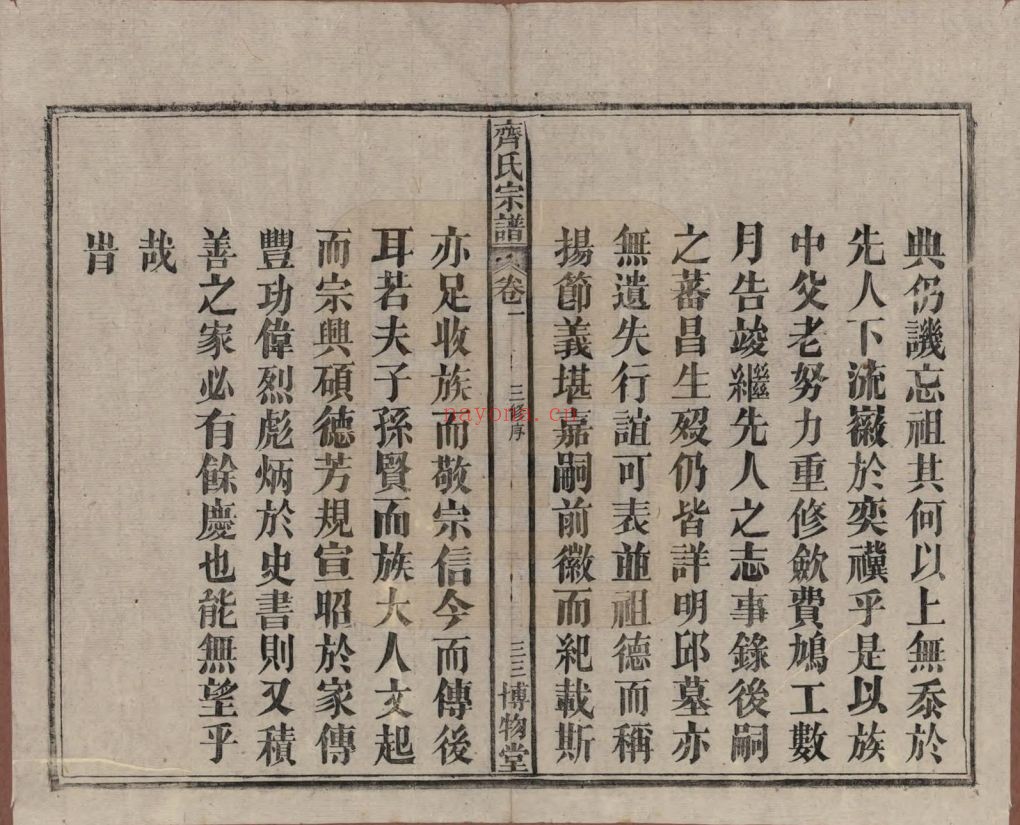 典仍譏忘祖其何以上無忝於
先人下流徽於奕禩乎是以族
中父老努力重修歛費鳩工數
月告竣繼先人之志事錄後嗣
之蕃昌生歿仍皆詳明邱墓亦
無遺失行誼可表並祖德而稱
揚節義堪嘉嗣前徽而紀載斯
齊氏宗譜
卷一
三修序
三三
博物堂
亦足收族而敬宗信今而傳後
耳若夫子孫賢而族大人文起
而宗興碩德芳規宣昭於家傳
豐功偉烈彪炳於史書則又積
善之家必有餘慶也能無望乎
哉
旹
nayona.cn